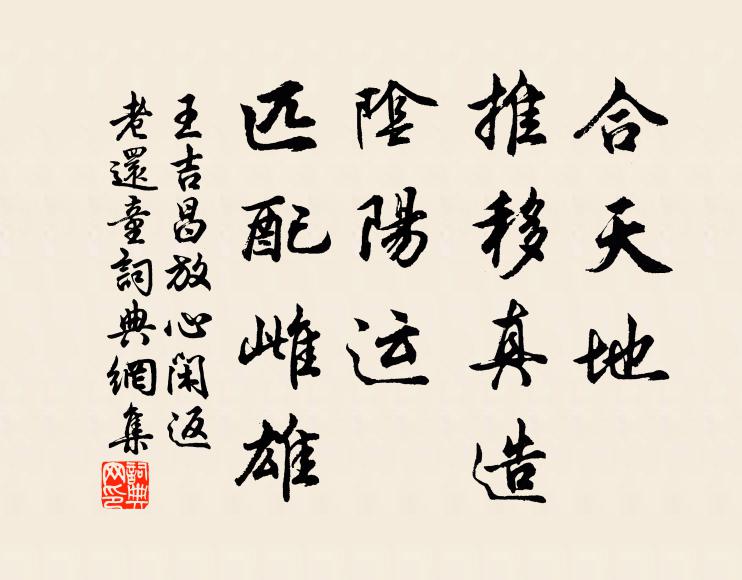 合天地
推移真造
陰陽运
匹配雌雄
王吉昌放心闲返
老還童詞典網集
詞典網印